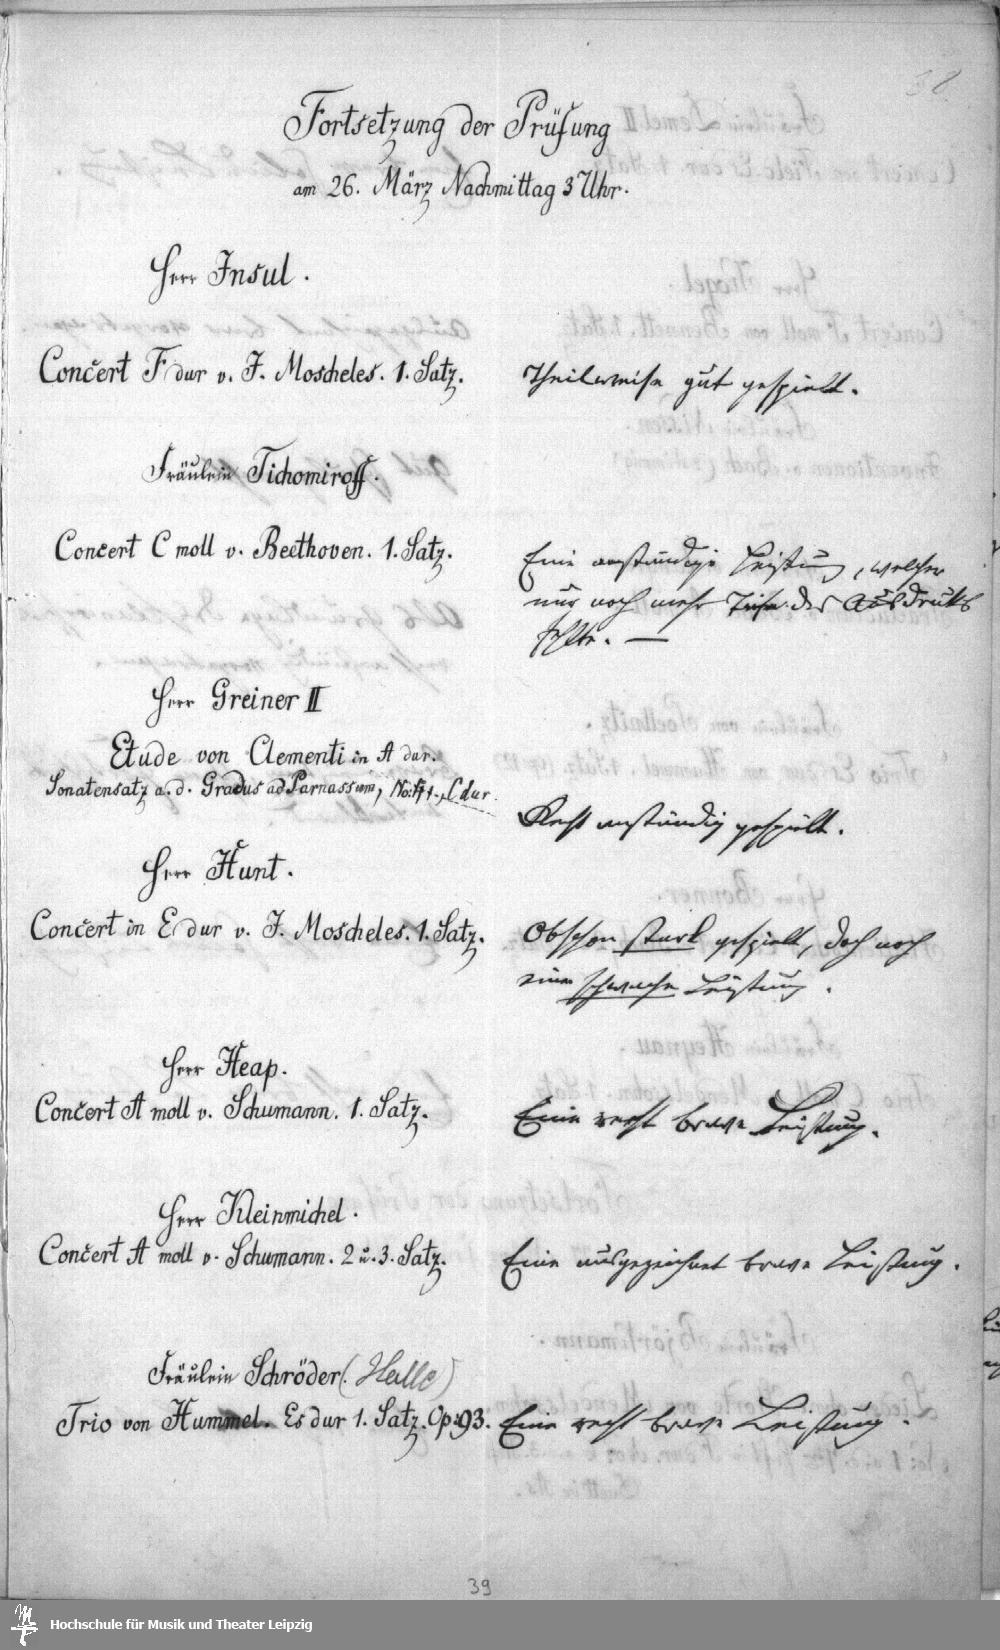 38.
Fortsetzung der Prüfung
am 26. März Nachmittag 3 Uhr.
Herr Insul.
Concert F dur v. J. Moscheles. 1. Satz.
Theilweise gut gespielt.
Fräulein Tichomiroff.
Concert C moll v. Beethoven. 1. Satz.
Eine anständige Leistung, welcher
nur noch mehr Tiefe des Ausdrucks
fehlte. —
Herr Greiner II
Etude von Clementi in A dur.
Sonatensatz a. d. Gradus ad Parnassum, C dur.
Recht anständig gespielt.
Herr Hunt.
Concert in E dur v. J. Moscheles. 1. Satz.
Obschon stark gespielt, doch noch
eine schwache Leistung.
Herr Heap.
Concert A moll v. Schumann. 1. Satz.
Eine recht brave Leistung.
Herr Kleinmichel.
Concert A moll v. Schumann. 2 u. 3. Satz.
Eine ausgezeichnet brave Leistung.
Fräulein Schröder. (Halle)
Trio von Hummel. Es dur 1. Satz. Op: 93.
Eine recht brave Leistung.
39
Hochschule für Musik und Theater Leipzig